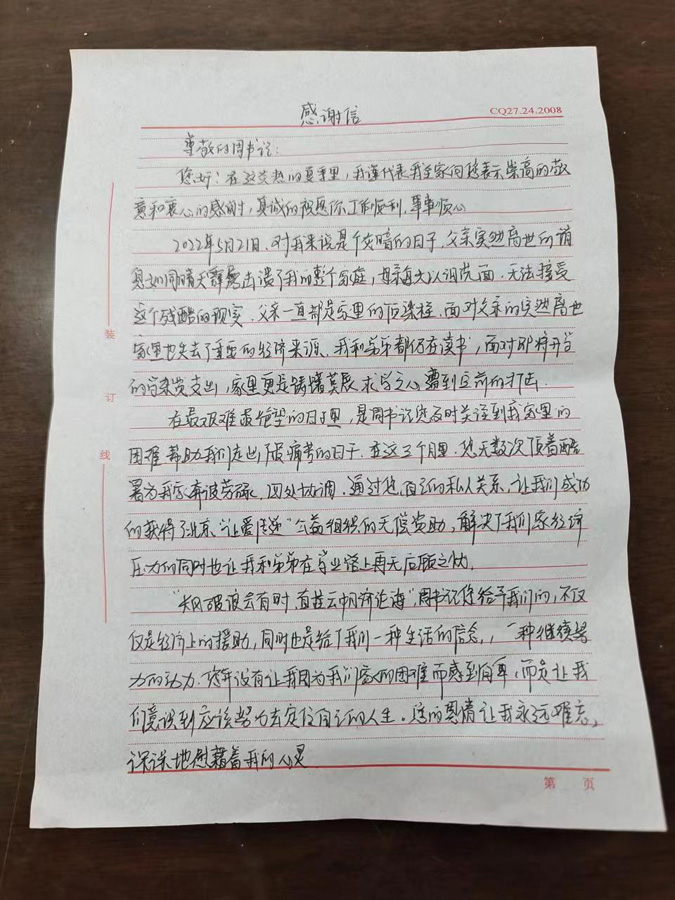 感谢信
CQ27.24.2008
尊敬的周书记:
您好!在这炎热的夏季里,我谨代表我全家向您表示崇高的敬
意和衷心的感谢!真诚的祝愿你工作顺利,事事顺心
2022年5月21日,对我来说是个灾暗的日子,父亲突然离世的消
息如同晴天霹雳击溃了我的整个家庭,母亲每天以泪洗面.无法接受
这个残酷的现实.父亲一直都是家里的顶梁柱.面对父亲的突然离世
家里也失去了重要的经济来源.我和弟弟都仍在读书,面对即将开学
的学杂费支出,家里更是踌躇莫展.求学之心遭到空前的打击.
装
订
线
在最艰难最绝望的日子里,是周书记您及时关注到我家里的
困难帮助我们走出了最痛苦的日子.在这三个月里.您无数次顶着酷
暑为我家奔波劳碌,四处协调.通过您自己的私人关系,让我们成功
的获得了北京"让爱传递"公益组织的无偿资助,解决了我们家经济
压力的同时也让我和弟弟在学业路上再无后顾之忧.
"长风破浪会有时,直挂云帆济沧海",周书记您给予我们的,不仅
仅是经济上的援助,同时也是给了我们一种生活的信念,一种继续努
力的动力.您并没有让我因为我们家的困难而感到自卑,而是让我
们意识到应该努力去定位自己的人生.您的恩情让我永远难忘,
深深地慰藉着我的心灵
第 页